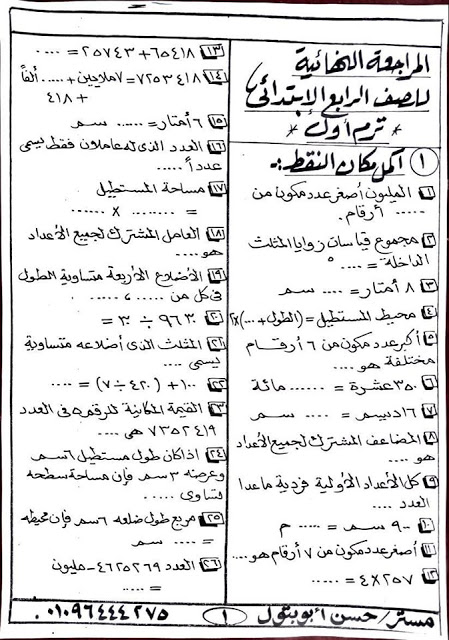 المراجعة النهائية
للصف الرابع الابتدائى
* ترم أول *
١ أكمل مكان النقط :.
١ المليون أصغر عدد مكون من
..... أرقام.
٢ مجموع قياسات زوايا المثلث
الداخلة = .... °
٣ ٨ أمتار = .... سم
٤ محيط المستطيل = (الطول + ...) ×٢
٥ أكبر عدد مكون من ٦ أرقام
مختلفة هو ....
٦ ٣٥٠ عشرة = ...... مائة
٧ ١٦ ديسم = .... سم
٨ المضاعف المشترك لجميع الأعداد
هو ....
٩ كل الأعداد الأولية فردية ماعدا
العدد ....
١٠ ٩٠٠ سم = ..... م
١١ أصغر عدد مكون من ٧ أرقام هو ....
١٢ ٢٥٧ × ٤ = .....
١٣ ٦٥٤١٨ + ٢٥٧٤٣ = ....
١٤ ٧٢٥٣٤١٨ = ٧ ملايين + ..... ألفاً
+ ٤١٨
١٥ ٦ أمتار = ..... سم
١٦ العدد الذى له عاملان فقط يسمى
عدداً .....
١٧ مساحة المستطيل
= ........ × ......
١٨ العامل المشترك لجميع الأعداد
هو ....
١٩ الأضلاع الأربعة متساوية الطول
فى كل من ..... ، .....
٢٠ ٩٦٣٠ ÷ ٣٠ =
٢١ المثلث الذى أضلاعه متساوية
يسمى ....
٢٢ ١٠٠ + (٤٢٠ ÷ ٧) = ....
٢٣ القيمة المكانية للرقم ٥ فى العدد
٧٣٥٢٤١٩ هى ....
٢٤ اذا كان طول مستطيل ٦ سم
وعرضه ٣ سم فإن مساحة سطحه
تساوى .....
٢٥ مربع طول ضلعه ٦ سم فإن محيطه
= .... سم
٢٦ العدد ٤٦٢٥٢٦٩ - مليون
= .....
مستر/ حسن أبو بتول
١
٠١٠٩٦٤٤٤٢٧٥